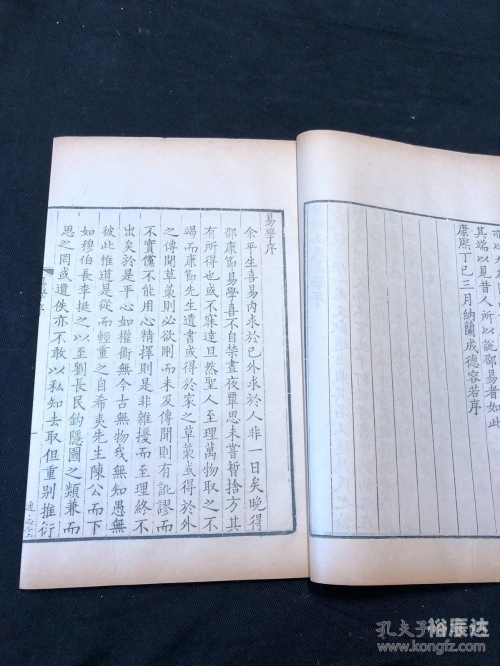 其端以見昔人所以說邵易者如此
康熙丁巳三月納蘭成德容若序
易學序
余平生喜易內求於己外求於人非一日矣晚得
邵康節易學喜不自禁晝夜覃思未嘗暫捨方其
有所得也或不寐達旦然聖人至理萬物取之不
竭而康節先生遺書或得於家之草藁或得於外
之傳聞草藁則必欲刪而未及傳聞則有訛謬而
不實儻不能用心精擇則是非雜擾而至理終不
出矣於是平心如權衡無今古無物我無知愚無
彼此惟道是從而輕重之自希夷先生陳公而下
如穆伯長李挺之以至劉長民鈎隱圖之類兼而
思之罔或遺佚亦不敢以私知去取但重別推衍
孔夫子
裕辰达
kongfz.com